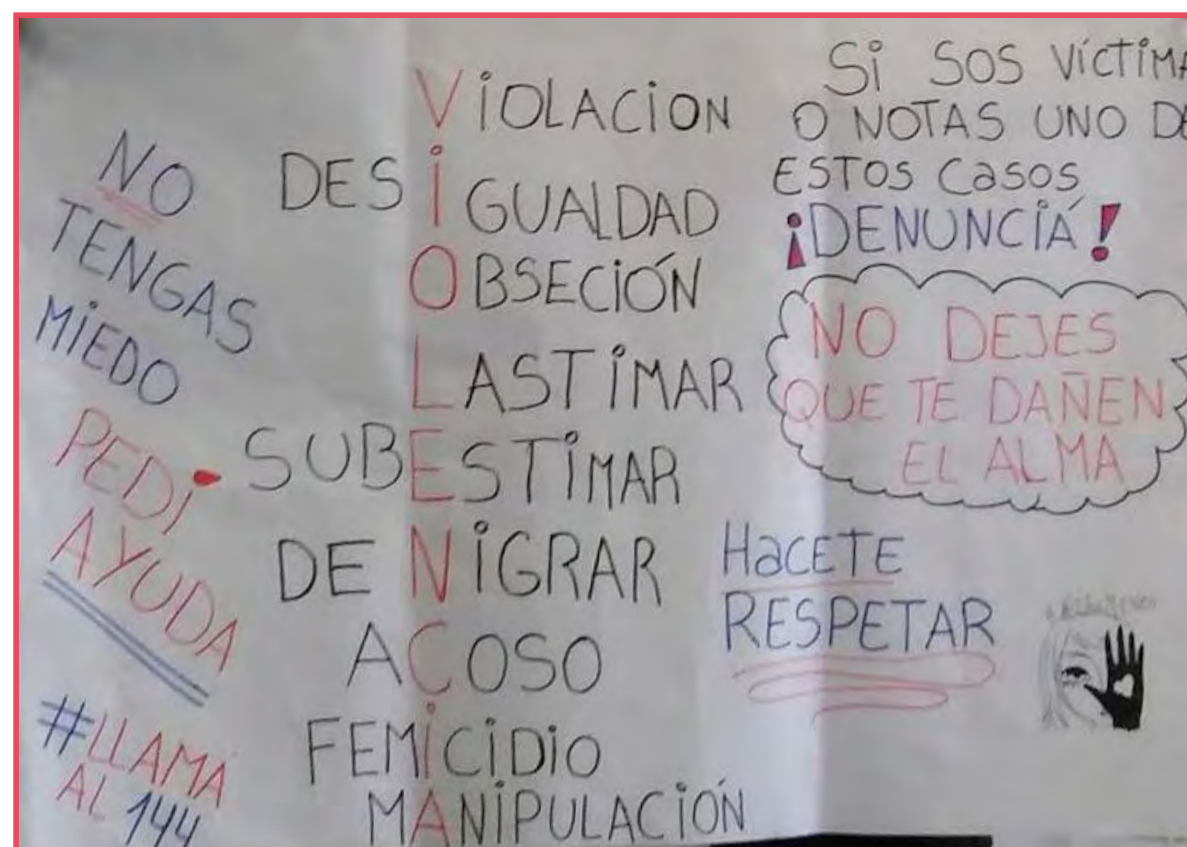 NO
TENGAS
MIEDO
PEDI
AYUDA
#LLAMA
AL 144
VIOLACION
DESIGUALDAD
OBSECIÓN
LASTIMAR
SUBESTIMAR
DENIGRAR
ACOSO
FEMICIDIO
MANIPULACIÓN
Si SOS VíCTIMA
O NOTAS UNO DE
ESTOS CASOS
¡DENUNCIÁ!
NO DEJES
QUE TE DAÑEN
EL ALMA
HACETE
RESPETAR